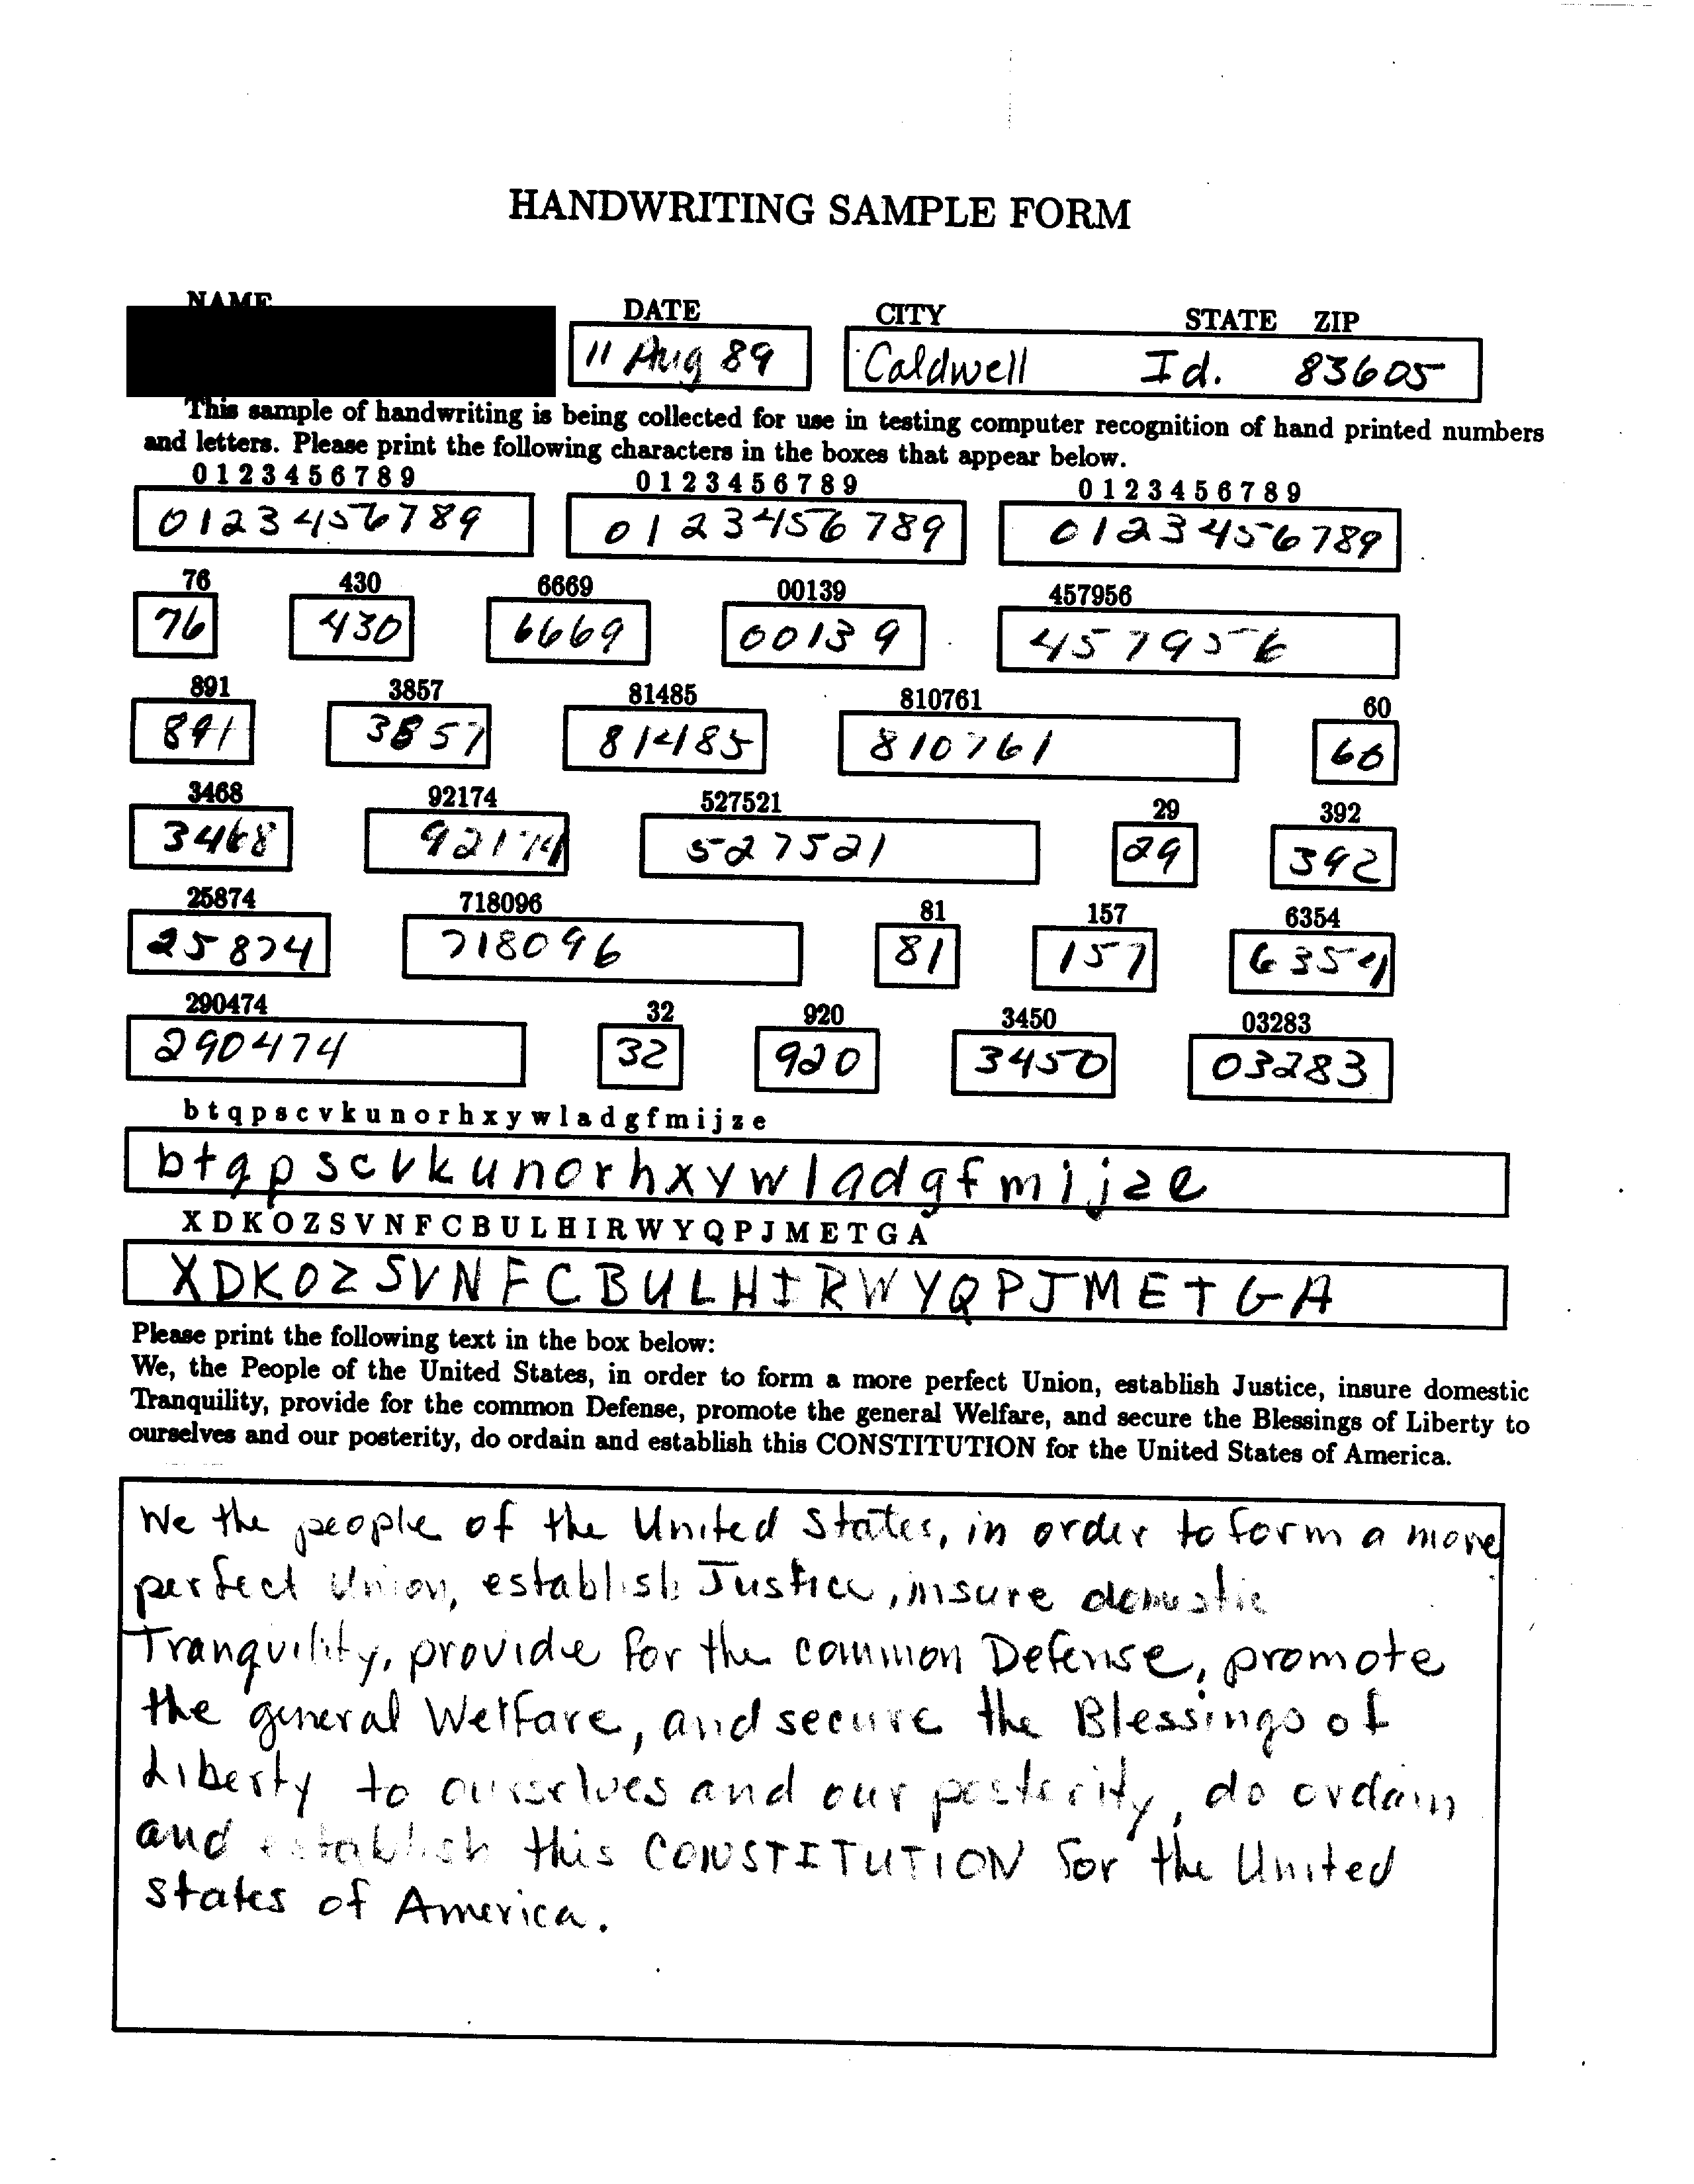 HANDWRITING SAMPLE FORM
NAME DATE CITY STATE ZIP
11 Aug 89 Caldwell Id. 83605
This sample of handwriting is being collected for use in testing computer recognition of hand printed numbers
and letters. Please print the following characters in the boxes that appear below.
0 1 2 3 4 5 6 7 8 9 0 1 2 3 4 5 6 7 8 9 0 1 2 3 4 5 6 7 8 9
0123456789 0123456789 0123456789
76 430 6669 00139 457956
76 430 6669 00139 457956
891 3857 81485 810761 60
891 3857 81485 810761 60
3468 92174 527521 29 392
3468 92174 527521 29 392
25874 718096 81 157 6354
25874 718096 81 157 6354
290474 32 920 3450 03283
290474 32 920 3450 03283
b t q p s c v k u n o r h x y w l a d g f m i j z e
btqpscvkunorhxywladgfmijze
X D K O Z S V N F C B U L H I R W Y Q P J M E T G A
XDKOZSVNFCBULHIRWYQPJMETGA
Please print the following text in the box below:
We, the People of the United States, in order to form a more perfect Union, establish Justice, insure domestic
Tranquility, provide for the common Defense, promote the general Welfare, and secure the Blessings of Liberty to
ourselves and our posterity, do ordain and establish this CONSTITUTION for the United States of America.
We the people of the United States, in order to form a more
perfect Union, establish Justice, insure domestic
Tranquility, provide for the common Defense, promote
the general Welfare, and secure the Blessings of
Liberty to ourselves and our posterity, do ordain
and establish this CONSTITUTION for the United
States of America.